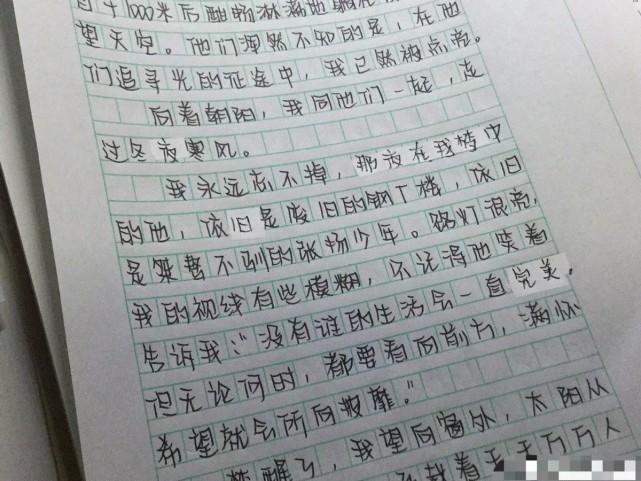 1000米后酣畅淋漓地躺在
望天空。他们浑然不知的是，在他
们追寻光的征途中，我已然被点亮。
向着朝阳，我同他们一起，走
过冬夜寒风。
我永远忘不掉，那夜在我梦中
的他，依旧是废旧的钢丁楼，依旧
是桀骜不驯的张扬少年。路灯很亮，
我的视线有些模糊，只记得他笑着
告诉我："没有谁的生活会一直完美，
但无论何时，都要看向前方，满怀
希望就会所向披靡。"
梦醒了，我望向窗外，太阳从
载着千千万万人